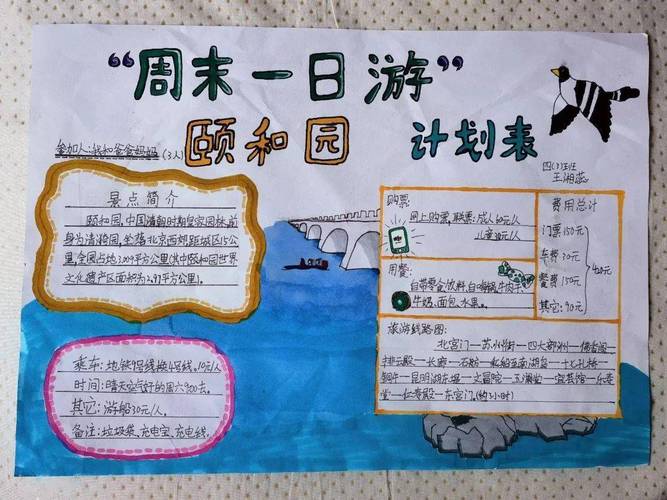 “周末一日游”
颐和园 计划表
参加人:我和爸爸妈妈(3人)
四(3)班
王湘蕊
景点简介
颐和园,中国清朝时期皇家园林,前
身为清漪园,坐落北京西郊,距城区15公
里,全园占地3.009平方公里(其中颐和园世界
文化遗产区面积为2.97平方公里)。
乘车:地铁7号线换4号线。10元/人
时间:晴天空气好的周六9:00去。
其它:游船30元/人。
备注:垃圾袋、充电宝、充电线。
购票:
网上购票,联票:成人60元/人
儿童30元/人
用餐:
自带零食饮料,自嗨锅、牛肉干、
牛奶、面包、水果。
费用总计
门票150元
车费30元
餐费150元
其它:90元
420元
旅游线路图:
北宫门—苏州街—四大部洲—佛香阁
排云殿—长廊—石舫—乘船至南湖岛—十七孔桥
铜牛—昆明湖东堤—文昌院—玉澜堂—宜芸馆—乐寿
堂—仁寿殿—东宫门。(约3小时)